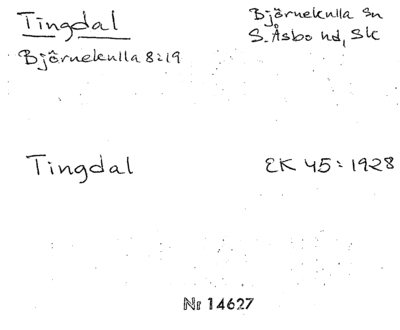 Tingdal
Björnekulla sn
S. Åsbo hd, Sk
Björnekulla 8:19
Tingdal
EK 45:1928
Nr 14627